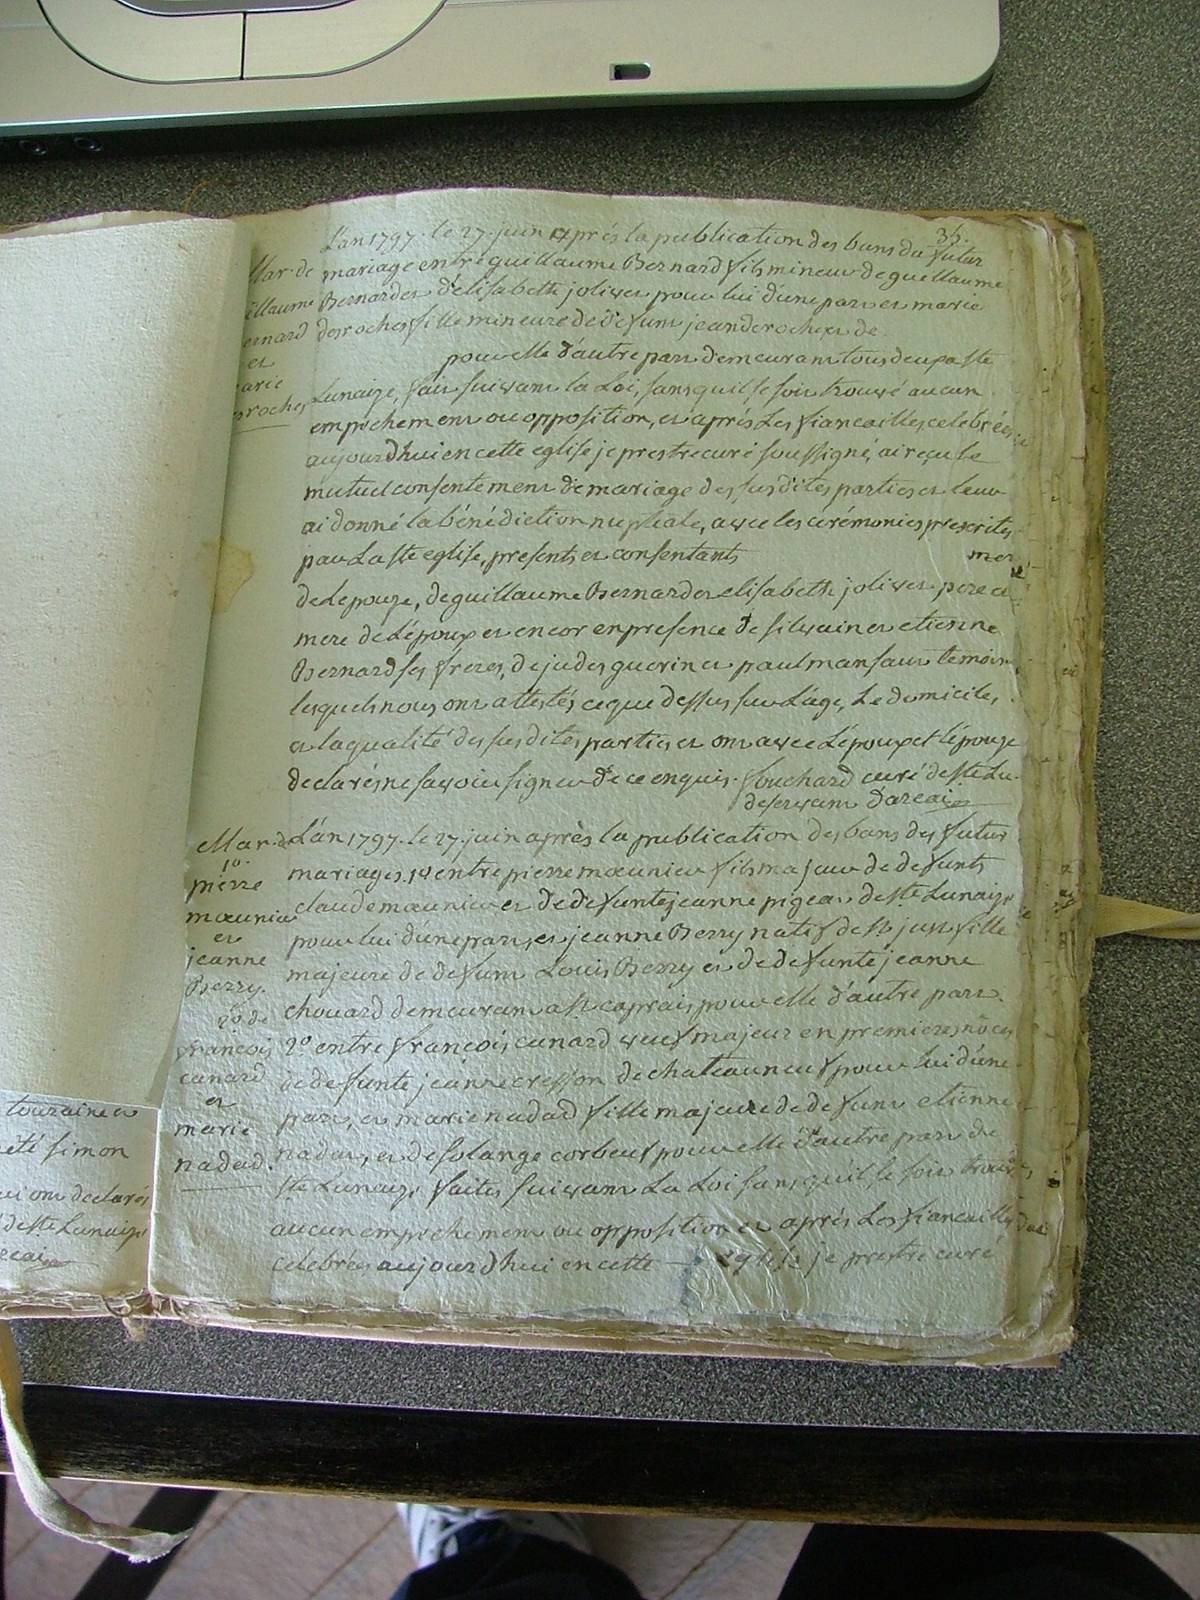 35.
L'an 1797. le 27. juin après la publication des bans du futur
mariage entre guillaume Bernard fils mineur de guillaume
Bernard et d'elisabeth joliver pour lui d'une part et marie
desroches fille mineure de defunt jean deroches et de
pour elle d'autre part demeurant tous deux a ste
Lunaize, fait suivant la Loi, sans qu'il se soit trouvé aucun
empechement ou opposition, et après Les fiancailles celebrées
aujourdhui en cette eglise je prestre curé soussigné, ai reçu le
mutuel consentement de mariage des susdites parties et leur
ai donné la bénédiction nuptiale, avec les cérémonies prescrites
par La ste eglise, presents et consentants mere
de Lepouze, de guillaume Bernard et elisabeth joliver pere et
mere de L'époux et encor en presence de silvain et etienne
Bernard ses freres, de judes guerin et paul mansaut temoins
lesquels nous ont attestés ce que dessus sur L'age, Le domicile,
et la qualité des susdites parties et ont avec L'époux et l'épouze
declarés ne savoir signer de ce enquis. fouchard curé de ste Lu.
deservant d'arcai
Mar. de
illaume
ernard
et
arie
sroches
L'an 1797. le 27. juin après la publication des bans des futur
mariages. 1º entre pierre mœunier fils majeur de defunts
claude mœunier et de defunte jeanne pigeat de ste Lunaize
pour lui d'une part, et jeanne Berry natif de st just fille
majeure de defunt Louis Berry et de defunte jeanne
chouard demeurant a st caprais pour elle d'autre part.
2º entre francois canard veuf majeur en premieres noces
de defunte jeanne cresson de chateauneuf pour lui d'une
part, et marie nadad fille majeure de defunt etienne
nadat, et de solange corbeuf pour elle d'autre part de
ste Lunaize faites suivant La Loi sans qu'il se soit trouvé
aucun empechement ou opposition et après Les fiancailles
celebrées aujourdhui en cette eglise je prestre curé
Mar. de
1º.
pierre
mœunier
et
jeanne
Berry.
2º de
francois
canard
et
marie
nadad.
touraine et
eté simon
ui ont declarés
de ste Lunaize
rcai